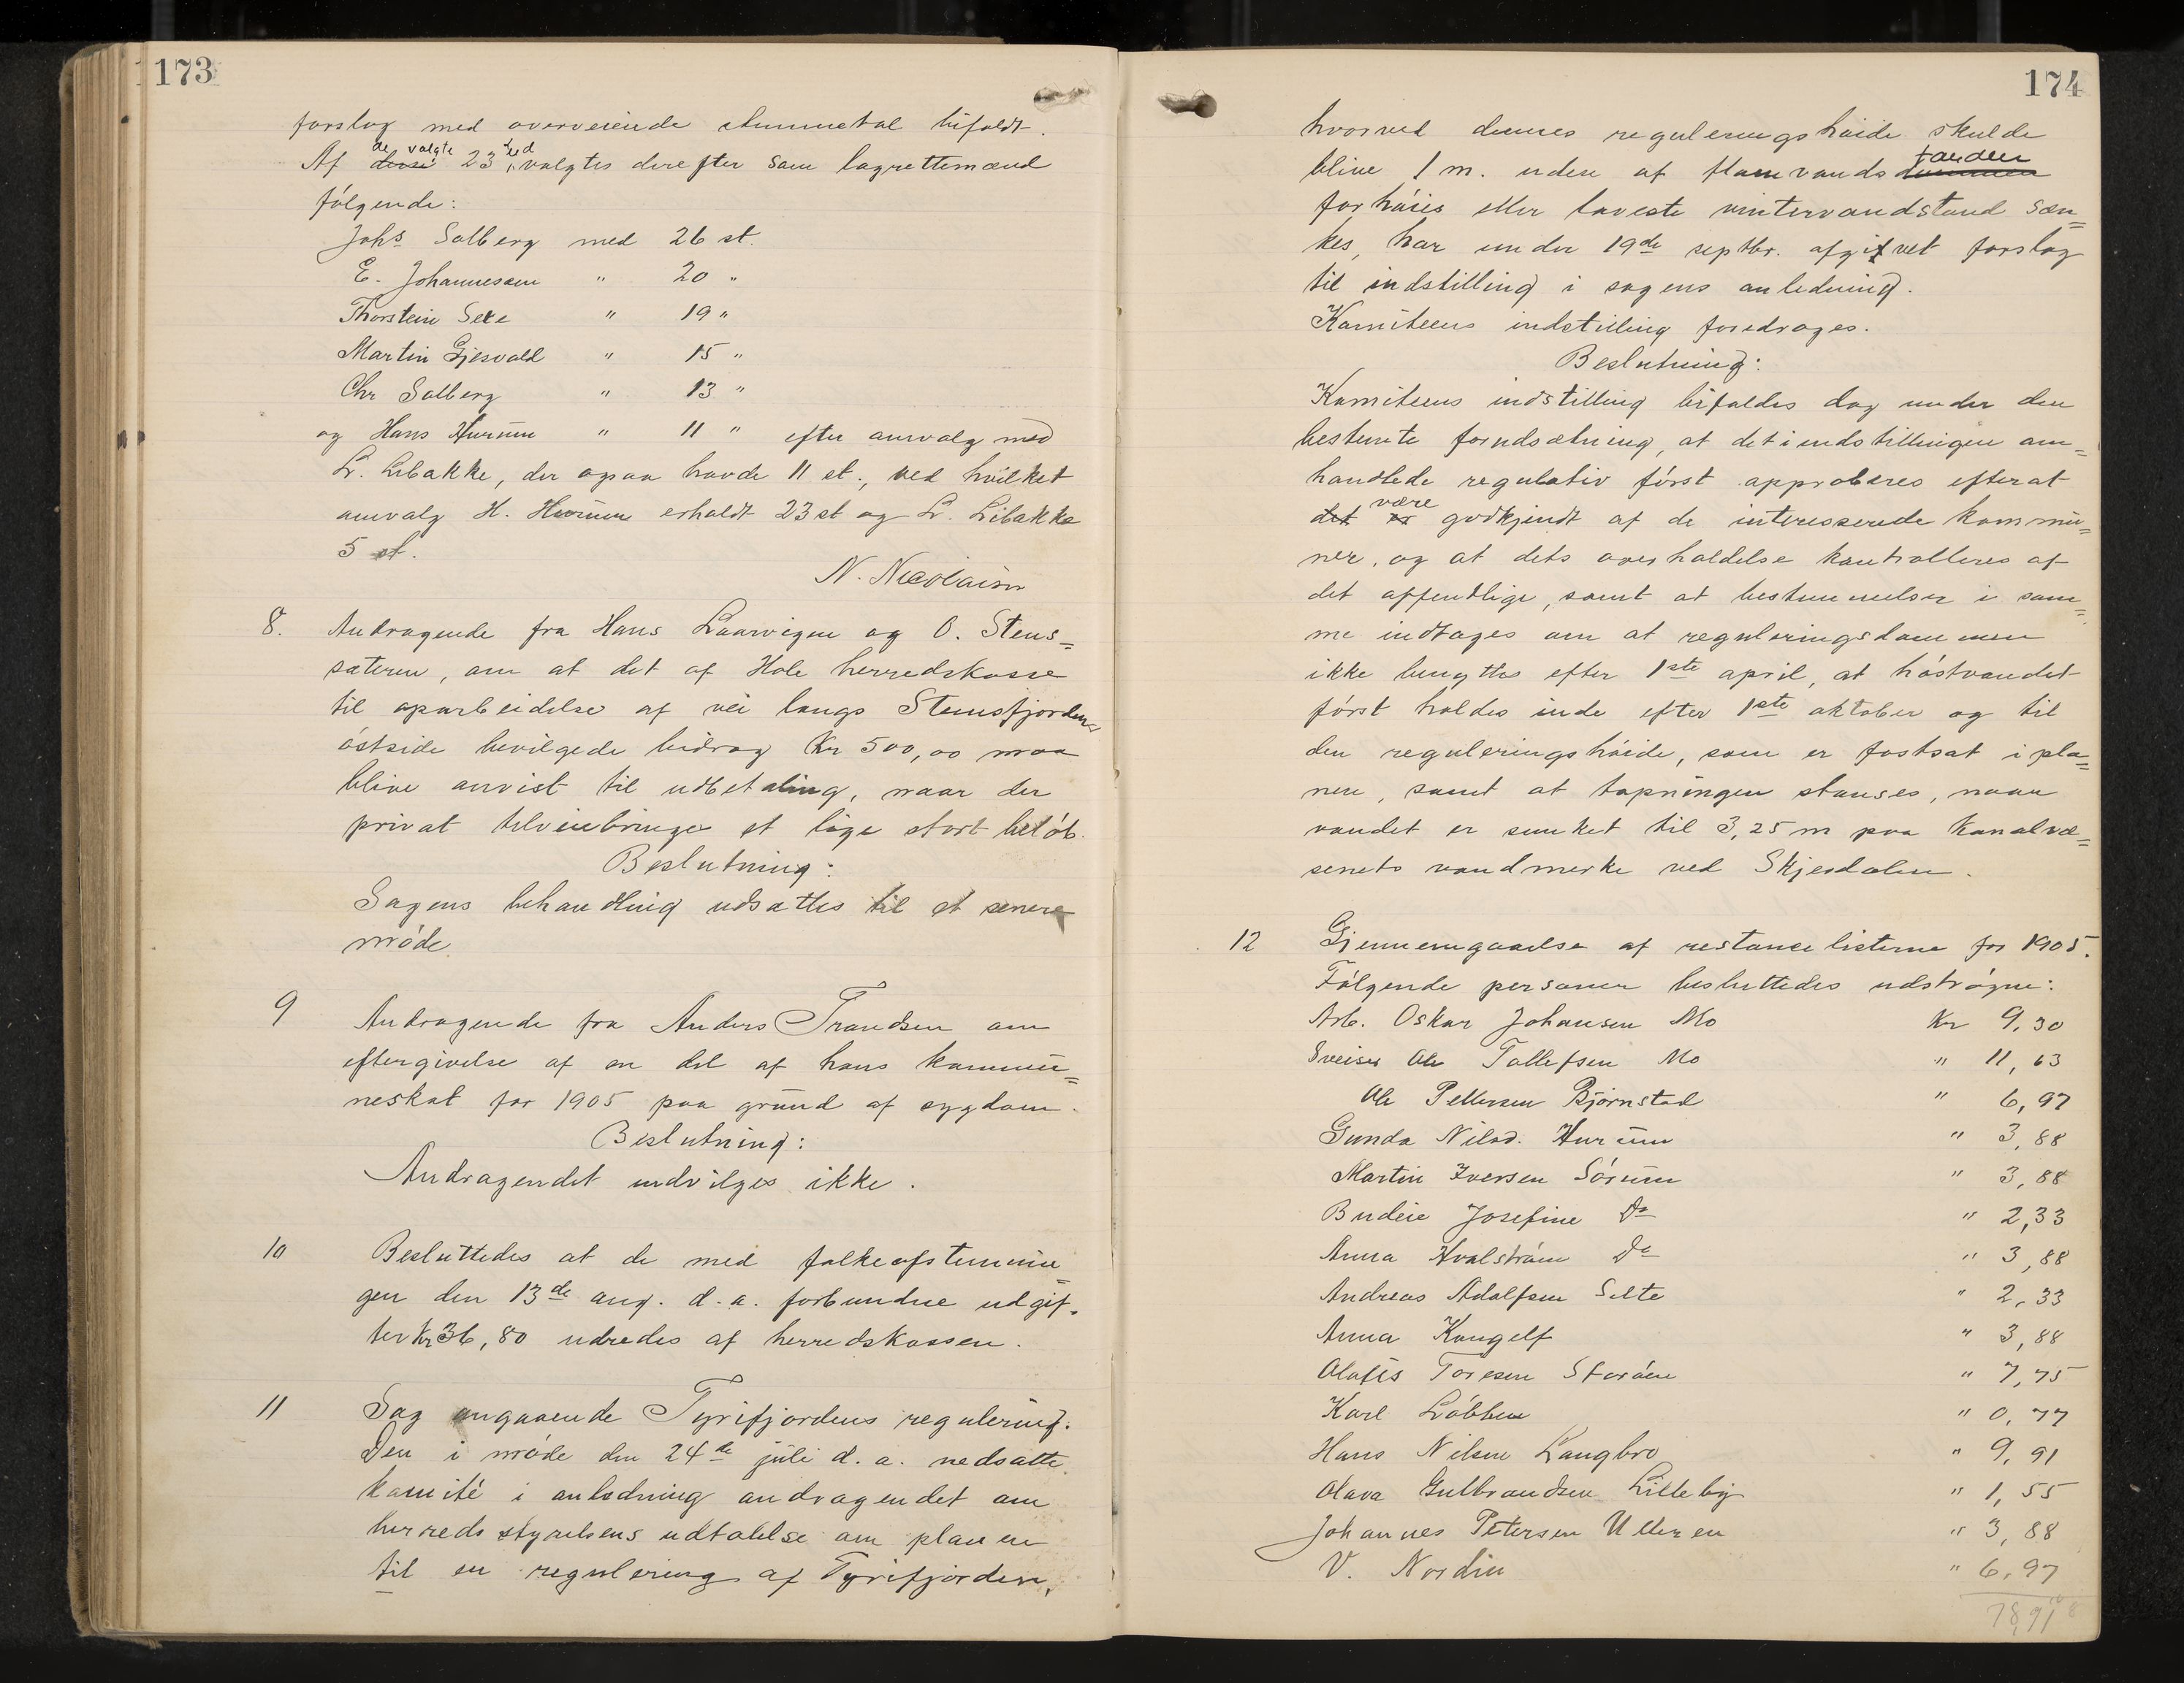 173
forslag med overveiende stemmetal bifaldt.
Af de valgte 23 led valgtes derefter som lagrettemænd
følgende:
Johs Solberg med 26 st.
E. Johannessen " 20 "
Thorstein Sele " 19 "
Martin Gjesvold " 15 "
Chr Solberg " 13 "
og Hans Hurum " 11 " efter omvalg med
L. Libakke, der ogsaa havde 11 st., ved hvilket
omvalg H. Hurum erholdt 23 st og L. Libakke
5 st.
N. Nicolaisen
8. Andragende fra Hans Laarvigen og O. Stens=
sæteren, om at det af Hole herredskasse
til oparbeidelse af vei langs Stensfjordens
østside bevilgede bidrag Kr 500,00 maa
blive anvist til udbetaling, naar der
privat tilveiebringes et lige stort beløb.
Beslutning:
Sagens behandling udsattes til et senere
møde.
9 Andragende fra Anders Trondsen om
eftergivelse af en del af hans kommu=
neskat for 1905 paa grund af sygdom.
Beslutning:
Andragendet indvilges ikke.
10 Besluttedes at de med folkeafstemnin
gen den 13de aug. d.a. forbundne udgif=
ter Kr 36,80 udredes af herredskassen.
11 Sag angaaende Tyrifjordens regulering.
Den i møde den 24de juli d.a. nedsatte
komité i anledning andragendet om
herredsstyrelsens udtalelse om planen
til en regulering af Tyrifjorden,
174
hvorved dennes reguleringshøide skulde
blive 1 m. uden at flomvandstanden
forhøies eller laveste vintervandstand sæn=
kes, har under 19de septbr. afgivet forslag
til indstilling i sagens anledning.
Komiteens indstilling foredrages.
Beslutning:
Komiteens indstilling bifaldes dog under den
bestemte forudsætning, at det i indstillingen om=
handlede regulativ først approberes efterat
det være godkjendt af de interesserede kommu=
ner, og at dets overholdelse kontrolleres af
det offentlige, samt at bestemmelser i sam=
me indtages om at reguleringsdammen
ikke benyttes efter 1ste april, at høstvandet
først holdes inde efter 1ste oktober og til
den reguleringshøide, som er fastsat i pla=
nen, samt at tapningen stanses, naar
vandet er sunket til 3,25 m paa Kanalvæ=
senets vandmerke ved Skjerdalen.
12 Gjennemgaaelse af restancelisterne for 1905.
Følgende personer besluttedes udstrøgne:
Arb. Oskar Johansen Mo Kr 9,30
Sveiser Ole Tollefsen Mo " 11,63
Ole Pettersen Bjørnstad " 6,97
Gunda Nilsd. Hurum " 3,88
Martin Iversen Sørum " 3,88
Budeie Josefine Do " 2,33
Anna Hvalstrøm Do " 3,88
Andreas Adolfsen Selte " 2,33
Anna Kongelf " 3,88
Olaves Toresen Storøen " 7,75
Karl Løbben " 0,77
Hans Nilsen Langbro " 9,91
Olava Gulbrandsen Lilleby " 1,55
Johannes Petersen Ulleren " 3,88
V. Nordin " 6,97
78,91